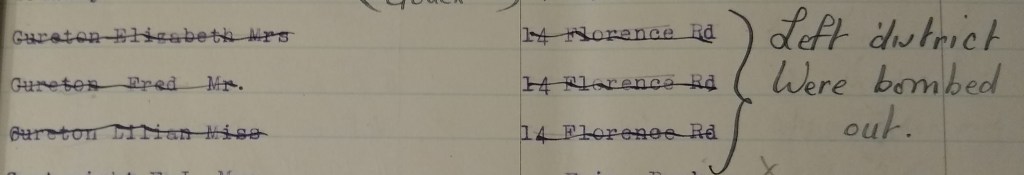 Cureton Elisabeth Mrs 14 Florence Rd Left district
Cureton Fred Mr. 14 Florence Rd Were bombed
Cureton Lilian Miss 14 Florence Rd out.